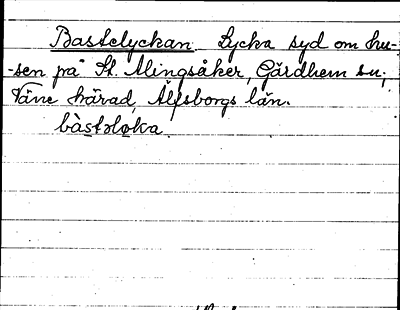 Bastelyckan. Lycka syd om hu-
-sen på St. Alingsåker, Gärdhem sn,
Väne härad, Älfsborgs län.
bàstəløka.